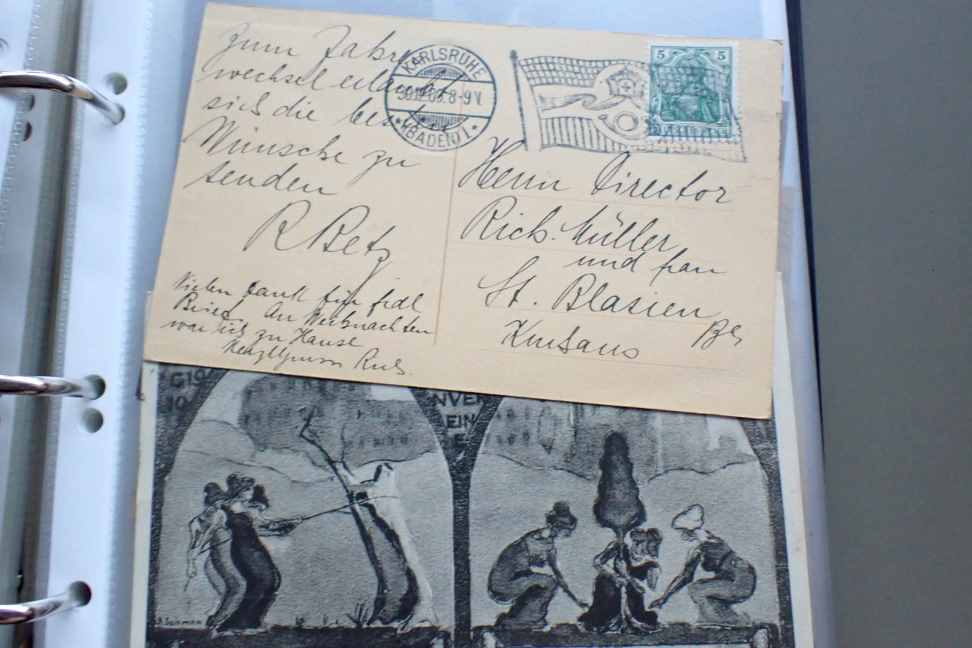 Zum Jahres
wechsel erlaubt
sich die besten
Wünsche zu
senden
R Betz
Vielen Dank für frdl
Brief. An Weihnachten
war ich zu Hause
KARLSRUHE
30.12.09. 8-9 V.
* (BADEN) 1 *
5 5
Herrn Director
Rich. Müller
und frau
St. Blasien
Kurhaus
NVER
EIN